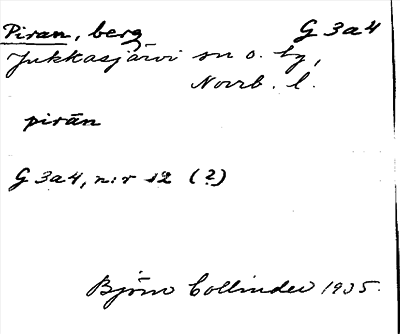 Piran, berg G 3a4
Jukkasjärvi sn o. tg,
Norrb. l.
pirān
G 3a4, n:r 12 (?)
Björn Collinder 1935.